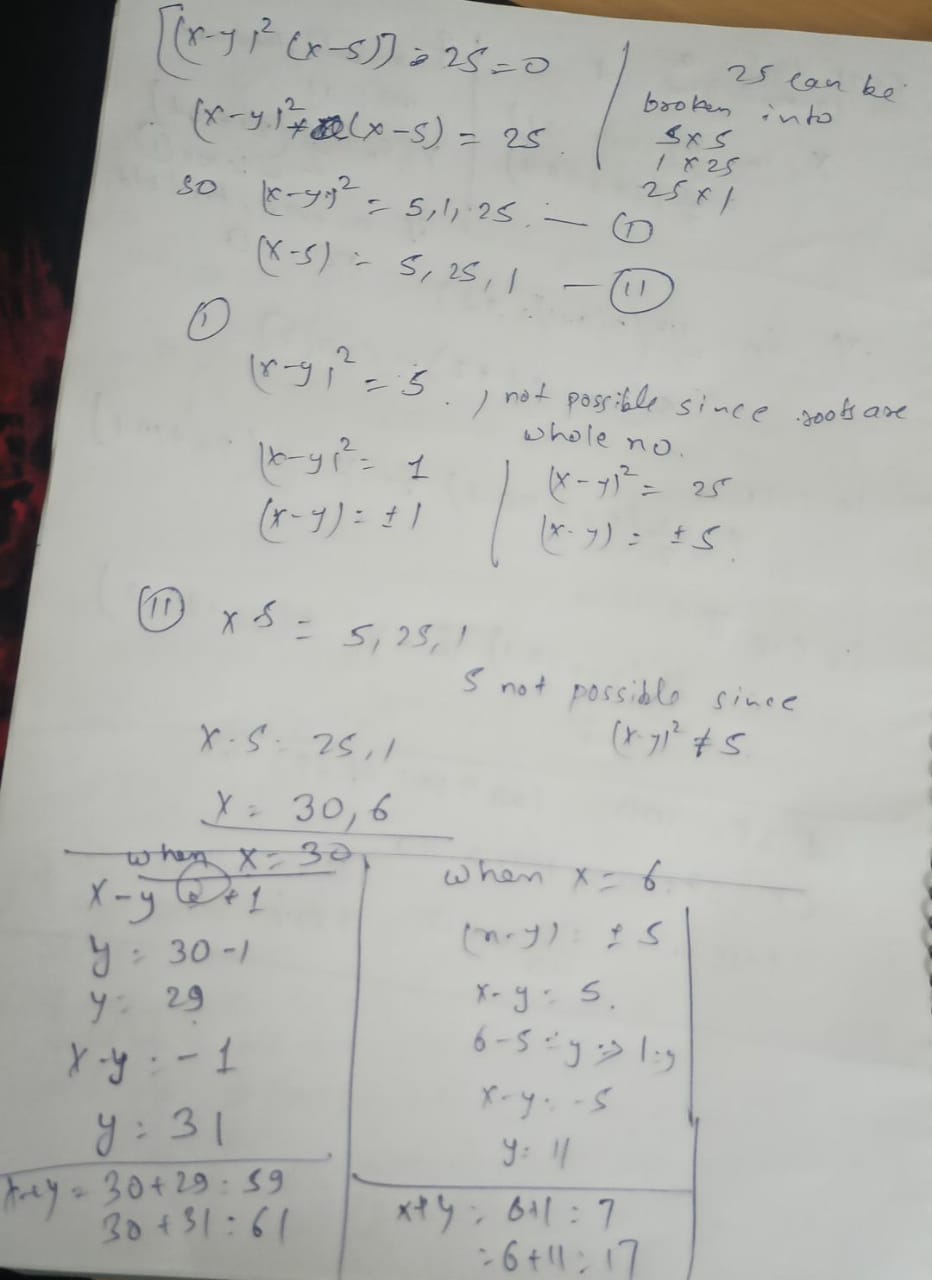 [(x-y)² (x-5)] - 25 = 0
(x-y)² (x-5) = 25
25 can be
broken into
5x5
1x25
25x1
so (x-y)² = 5, 1, 25. — (I)
(x-5) = 5, 25, 1 — (II)
(I)
(x-y)² = 5. , not possible since roots are
whole no.
(x-y)² = 1
(x-y) = ±1
(x-y)² = 25
(x-y) = ±5
(II) x 5 = 5, 25, 1
5 not possible since
(x-y)² ≠ 5
x-5 = 25, 1
x = 30, 6
when x = 30
x-y = +1
y = 30-1
y = 29
x-y = -1
y = 31
x+y = 30+29 = 59
30+31 = 61
when x = 6
(x-y) = ±5
x-y = 5.
6-5 = y => 1=y
x-y = -5
y = 11
x+y = 6+1 = 7
= 6+11 = 17